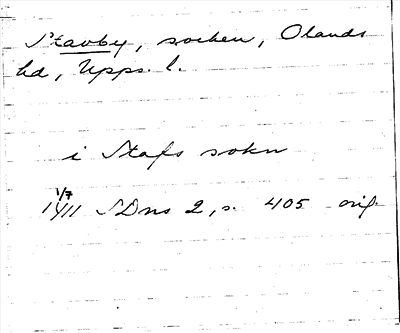 Stavby, socken, Olands
hd, Upps. l.
i Stafs sokn
1/7
1411 SDns 2, s. 405 orig.